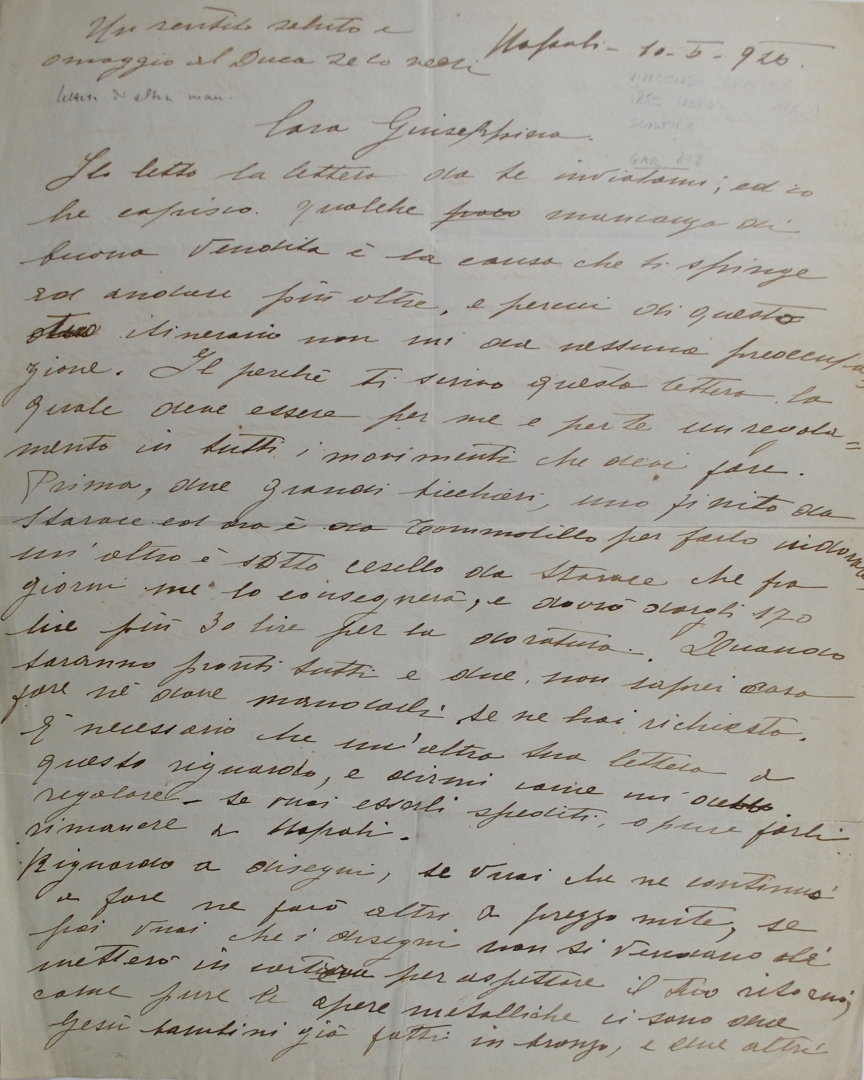 Un sentito saluto e
omaggio al Duca se lo vedi
Napoli - 10-5-925.
lettera di altra man.
Cara Giuseppina.
Ho letto la lettera da te inviatami; ed io
ne capisco. qualche poco mancanza di
buona vendita è la causa che ti spinge
ed andare più oltre, e perciò di questo
itinerario non mi da nessuna preoccupa
zione. Il perchè ti scrivo questa lettera la
quale deve essere per me e per te un regola=
mento in tutti i movimenti che devi fare.
Prima, due grandi bicchieri, uno finito da
Starace ed ora è da Tommolillo per farlo indorare
un'altro è sotto cesello da Starace che fra
giorni me lo consegnerà, e dovrò dargli 170
lire più 30 lire per la doratura. Quando
saranno pronti tutti e due, non saprei cosa
fare nè dove mandarli se ne hai richiesta.
È necessario che un'altra tua lettera a
questo riguardo, e dirmi come mi debbo
regolare - se vuoi esserli spediti, o pure farli
rimanere a Napoli.
Riguardo a disegni, se vuoi che ne continuo
a fare ne farò altri a prezzo mite, se
poi vuoi che i disegni non si vendano
metterò in per aspettare il tuo ritorno,
come pure le opere metalliche ci sono due
Gesù bambini già fatti in bronzo, e due altri